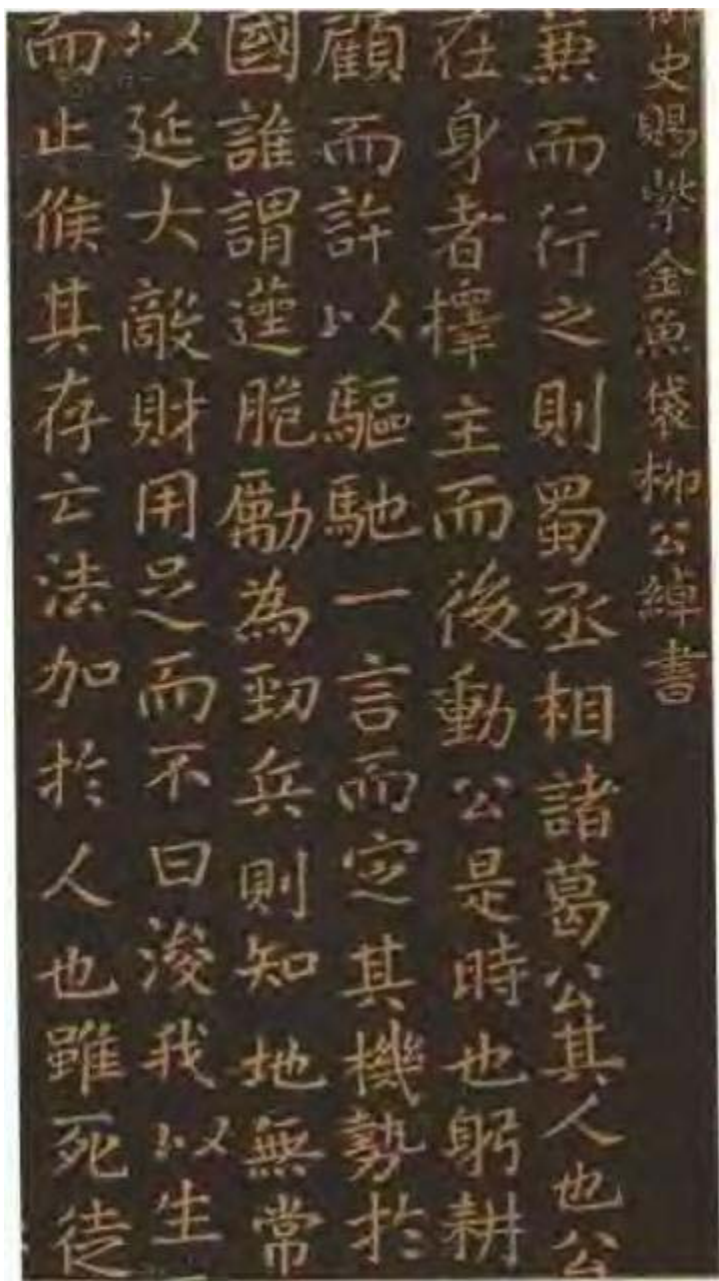 御史賜紫金魚袋柳公綽書
兼而行之則蜀丞相諸葛公其人也公
在身者擇主而後動公是時也躬耕
顧而許以驅馳一言而定其機勢於
國誰謂蓬脆勵為勁兵則知地無常
以延大敵財用足而不曰浚我以生
而止候其存亡法加於人也雖死徒